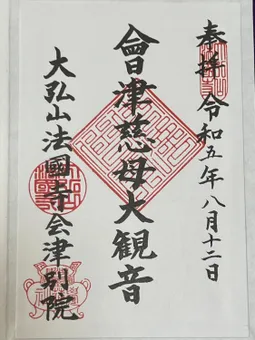 奉拝 令和五年八月十二日
會津慈母大観音
大弘山法國寺会津別院